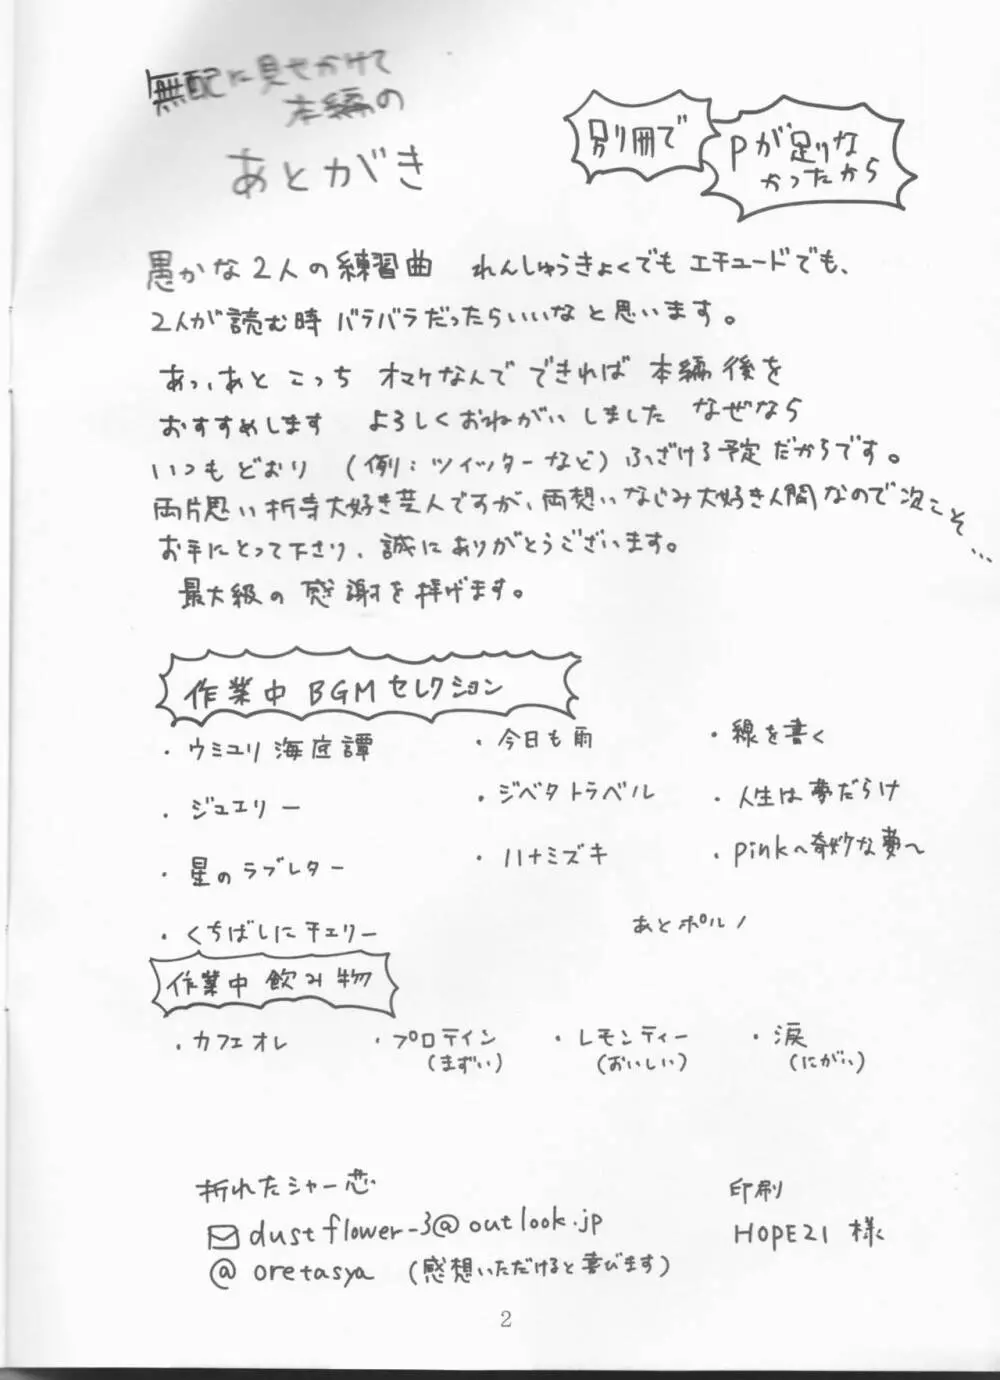 無配に見せかけて
本編の
あとがき
別冊で
Pが足りな
かったから
愚かな2人の練習曲 れんしゅうきょくでも エチュードでも、
2人が読む時 バラバラだったらいいなと思います。
あっ、あと こっち オマケなんで できれば 本編後を
おすすめします よろしくおねがいしました なぜなら
いつもどおり (例:ツイッターなど) ふざける予定だからです。
両片思い折寺大好き芸人ですが、両想いなじみ大好き人間なので次こそ…
お手にとって下さり、誠にありがとうございます。
最大級の感謝を捧げます。
作業中BGMセレクション
・ウミユリ海底譚 ・今日も雨 ・線を書く
・ジュエリー ・ジベタトラベル ・人生は夢だらけ
・星のラブレター ・ハナミズキ ・pinkへ奇妙な夢へ
・くちばしにチェリー あとポルノ
作業中飲み物
・カフェオレ ・プロテイン ・レモンティー ・涙
(まずい) (おいしい) (にがい)
折れたシャー芯 印刷
dustflower-3@outlook.jp HOPE21 様
@oretasya (感想いただけると喜びます)
2